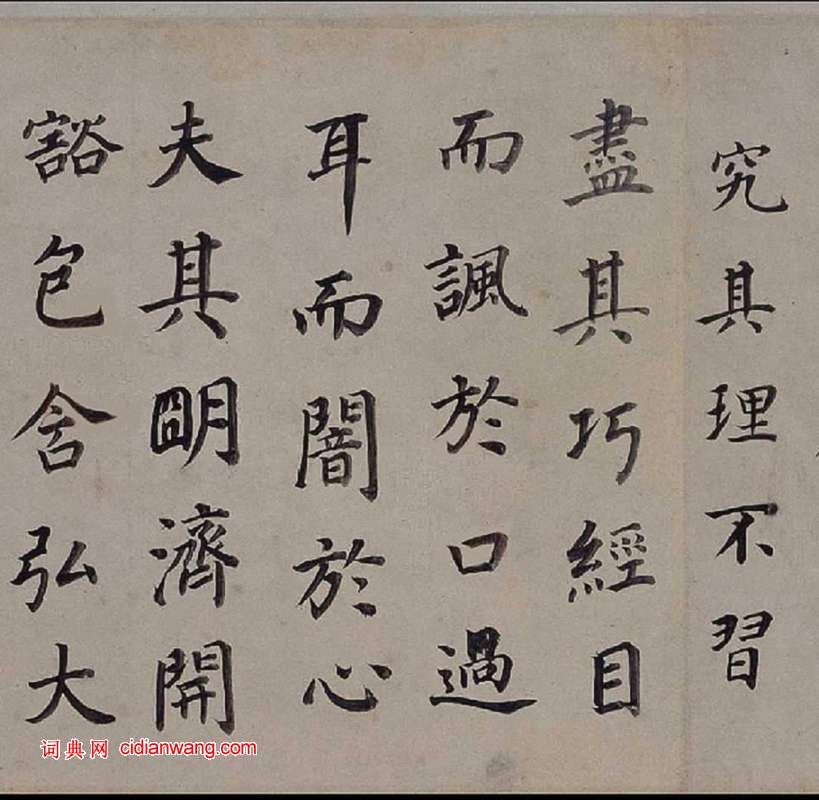 究其理不習
盡其巧經目
而諷於口過
耳而闇於心
夫其明濟開
豁包含弘大
词典网 cidianwang.com